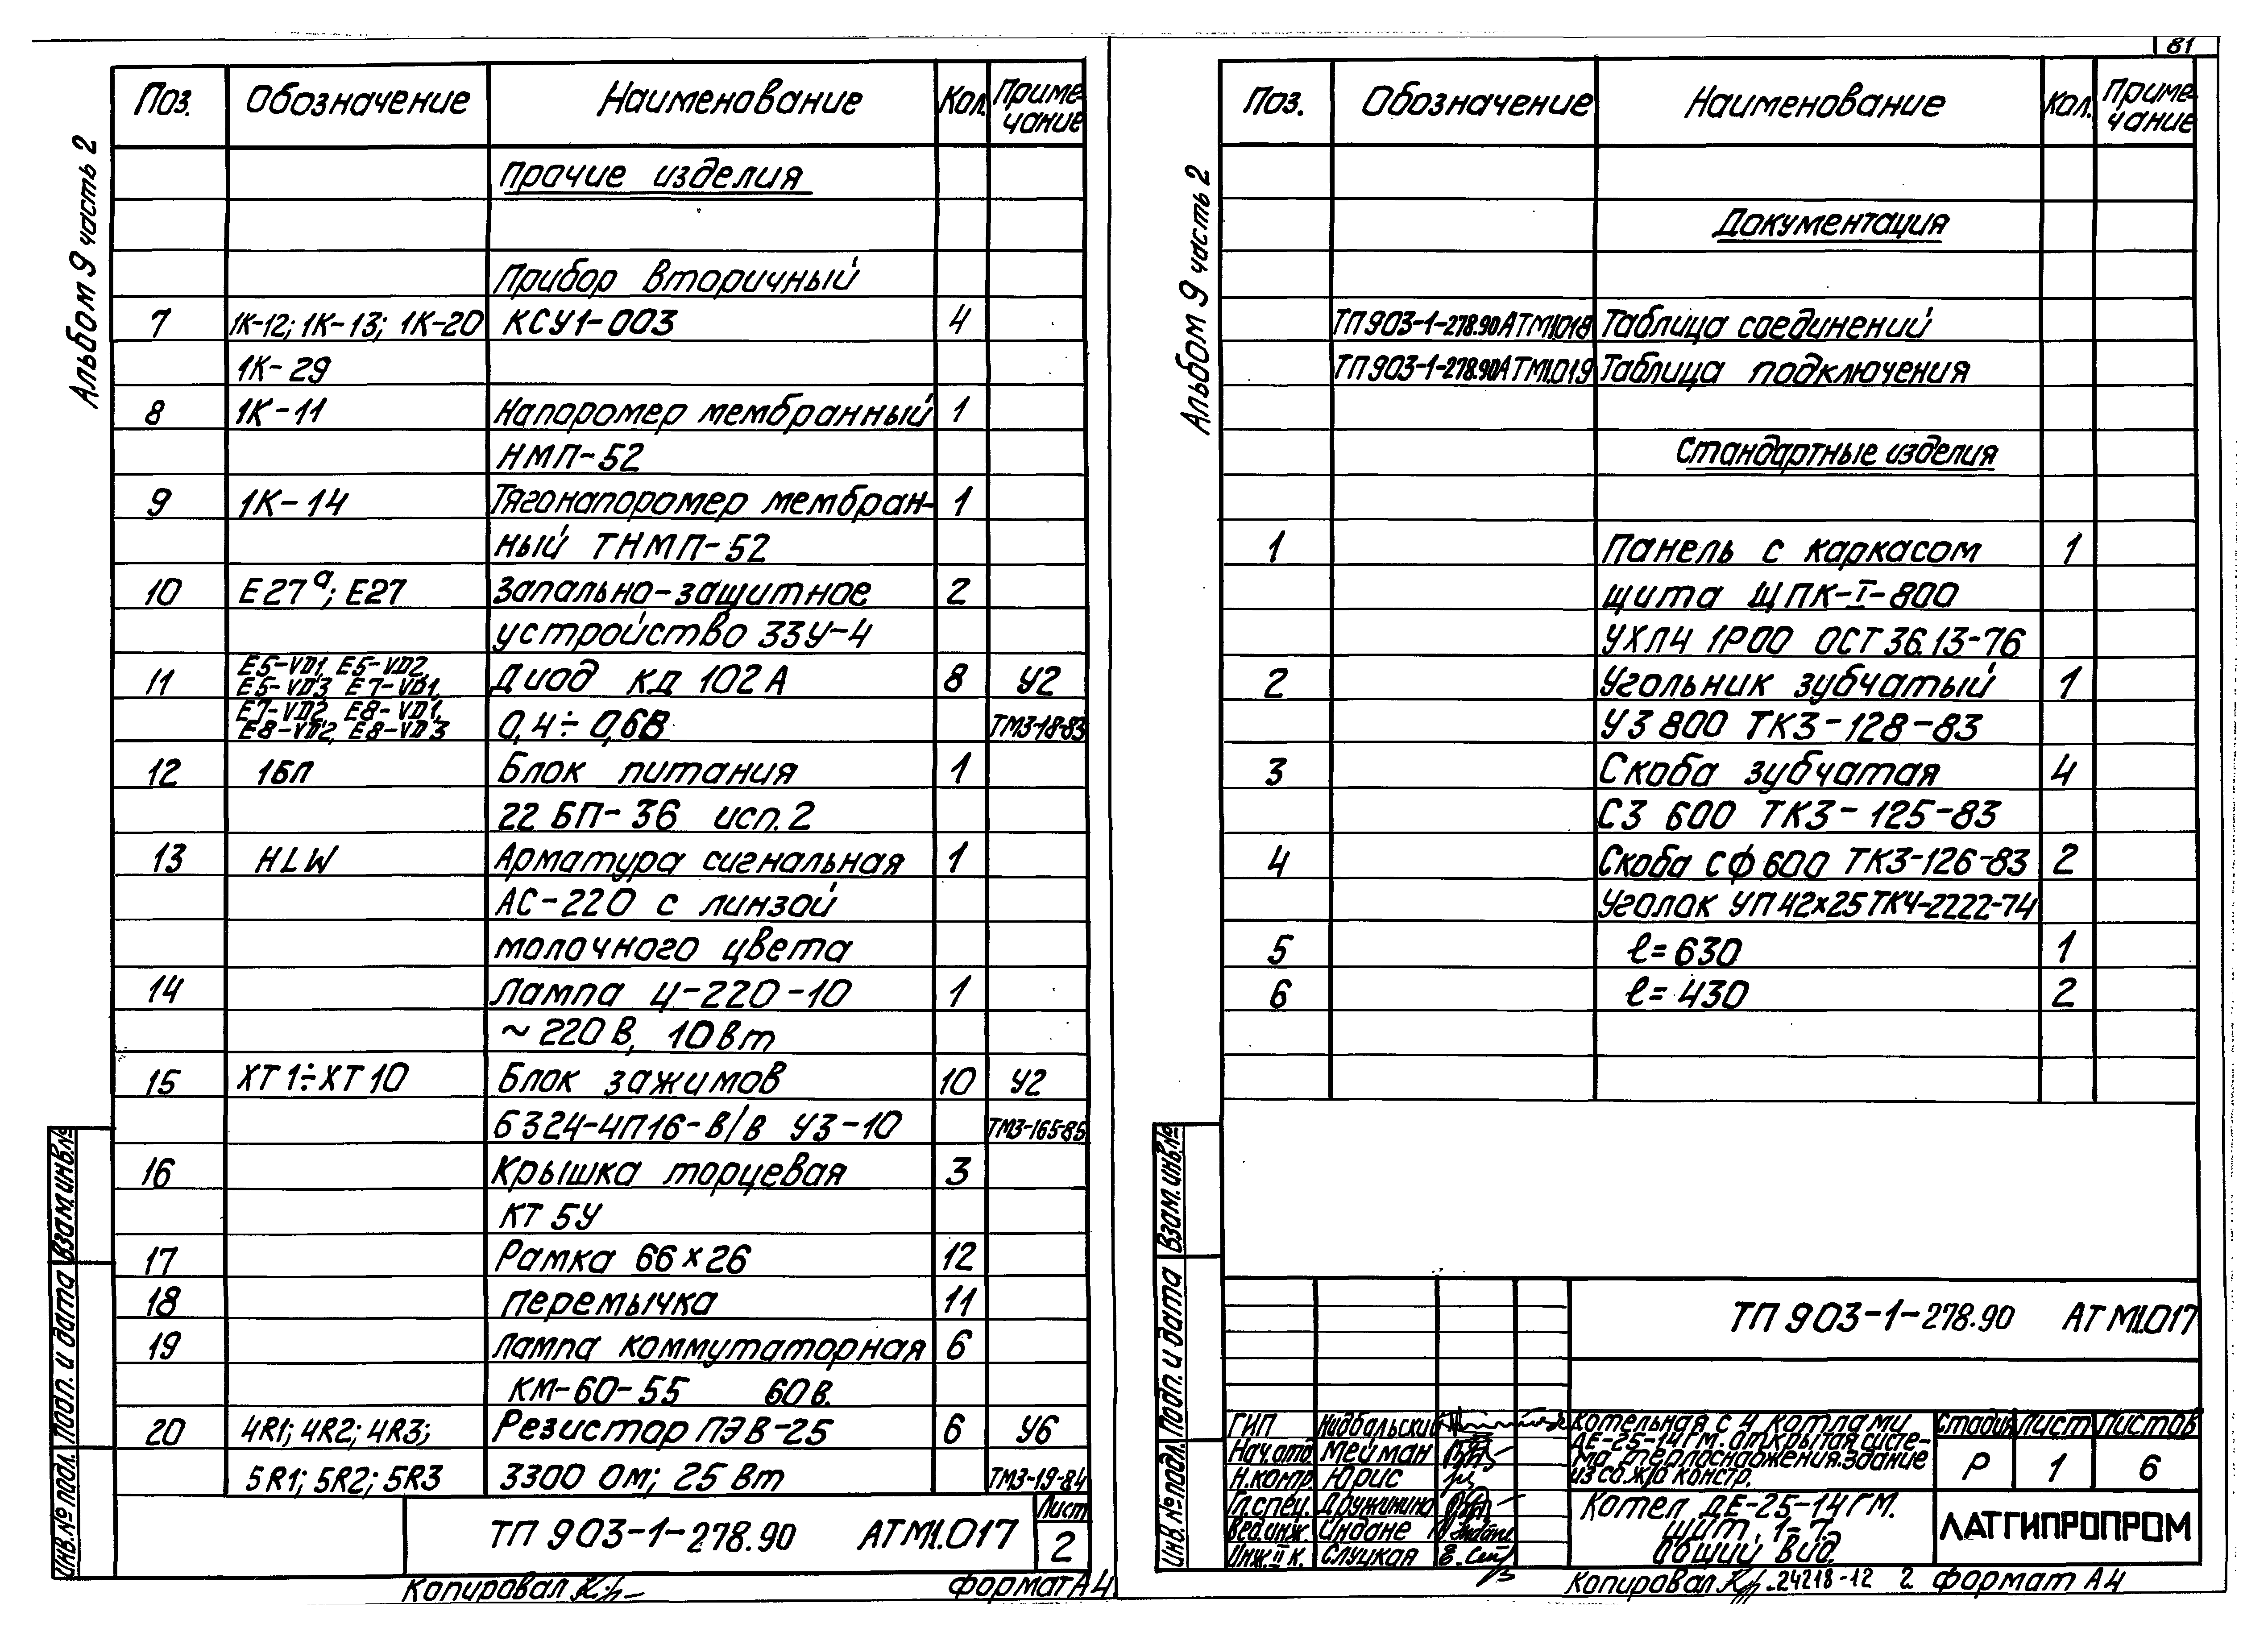 81
Альбом 9 часть 2
Поз. Обозначение Наименование Кол. Приме-
чание
Прочие изделия
Прибор вторичный
7 1К-12; 1К-13; 1К-20 КСУ1-003 4
1К-29
8 1К-11 Напоромер мембранный 1
НМП-52
9 1К-14 Тягонапоромер мембран- 1
ный ТНМП-52
10 Е27а; Е27 Запально-защитное 2
устройство ЗЗУ-4
11 Е5-VD1, Е5-VD2, Диод КД 102А 8 У2
Е5-VD3 Е7-VD1,
Е7-VD2, Е8-VD1, 0,4÷0,6В ТМ3-18-83
Е8-VD2, Е8-VD3
12 1БП Блок питания 1
22 БП-36 исп. 2
13 HLW Арматура сигнальная 1
АС-220 с линзой
молочного цвета
14 Лампа Ц-220-10 1
~220В, 10Вт
15 ХТ1÷ХТ10 Блок зажимов 10 У2
БЗ24-4П16-В/В У3-10 ТМ3-165-85
16 Крышка торцевая 3
КТ 5У
17 Рамка 66х26 12
18 перемычка 11
19 Лампа коммутаторная 6
КМ-60-55 60В.
20 4R1; 4R2; 4R3; Резистор ПЭВ-25 6 У6
5R1; 5R2; 5R3 3300 Ом; 25 Вт ТМ3-19-84
ТП 903-1-278.90 АТМ1.017 Лист
2
Инв.№ подл. Подп. и дата Взам.инв.№
Копировал Формат А4
Альбом 9 часть 2
Поз. Обозначение Наименование Кол. Приме-
чание
Документация
ТП903-1-278.90АТМ1.018 Таблица соединений
ТП903-1-278.90АТМ1.019 Таблица подключения
Стандартные изделия
1 Панель с каркасом 1
щита ЩПК-I-800
УХЛ4 1Р00 ОСТ 36.13-76
2 Угольник зубчатый 1
УЗ 800 ТК3-128-83
3 Скоба зубчатая 4
СЗ 600 ТК3-125-83
4 Скоба СФ600 ТК3-126-83 2
Уголок УП42х25ТК4-2222-74
5 ℓ=630 1
6 ℓ=430 2
Инв.№подл. Подп. и дата Взам.инв.№
ТП 903-1-278.90 АТМ1.017
ГИП Нидбальский
Нач.отд. Мейман
Н.контр. Юрис
Гл.спец. Дружинина
Вед.инж. Индане
Инж.II к. Слуцкая
Котельная с 4 котлами
ДЕ-25-14ГМ. открытая систе-
ма теплоснабжения. Здание
из сб.ж/б констр.
Стадия Лист Листов
Р 1 6
Котел ДЕ-25-14ГМ.
Щит 1-7.
Общий вид.
ЛАТГИПРОПРОМ
Копировал 24218-12 2 Формат А4